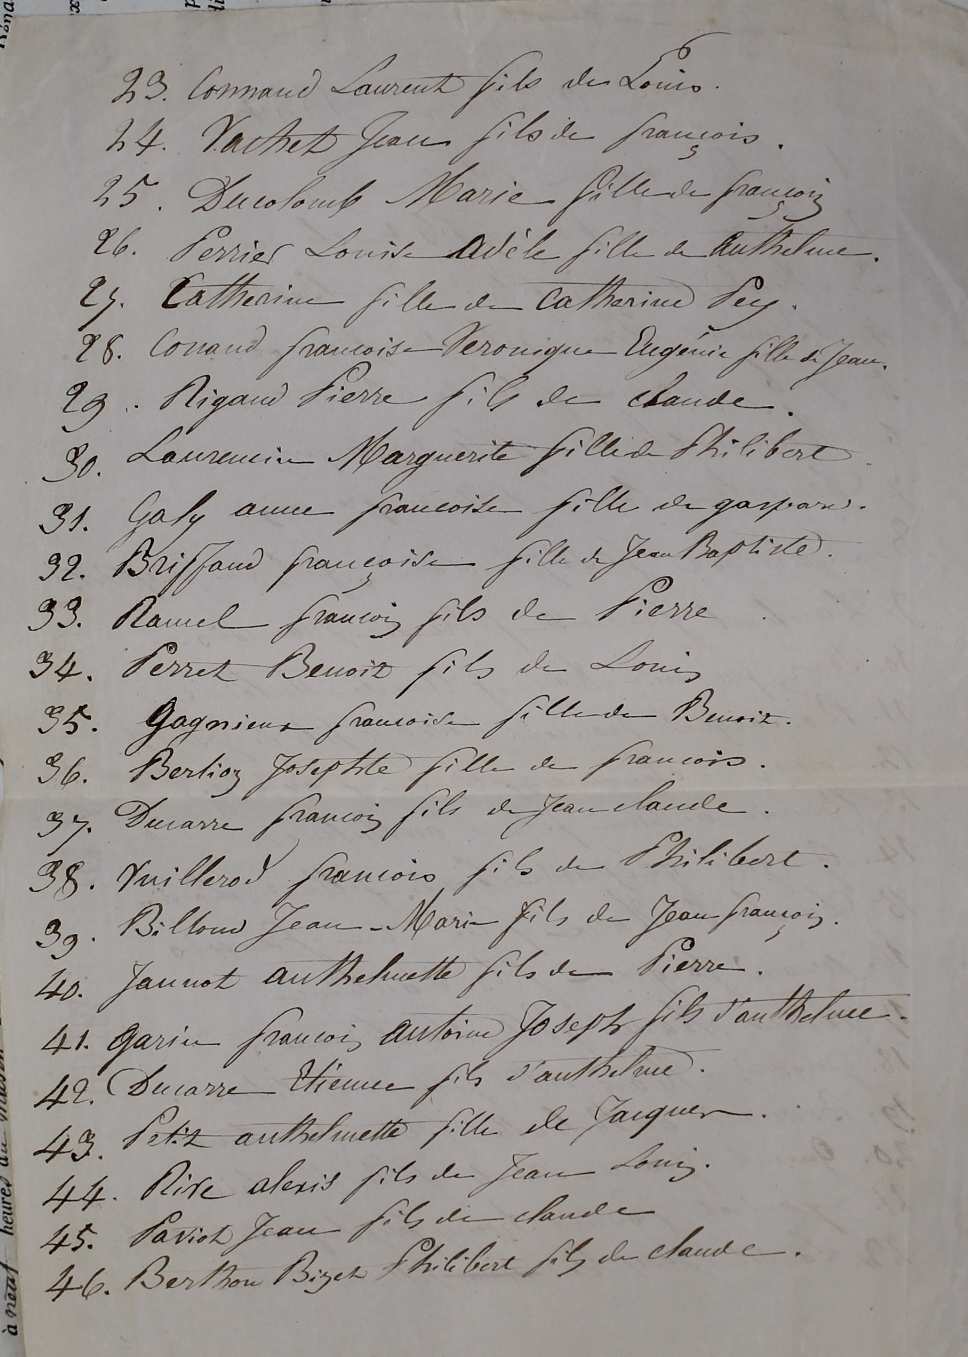 23. Connaud Laurent fils de Louis.
24. Vachet Jean fils de françois.
25. Ducolomb Marie fille de françois
26. Perrier Louise Adèle fille de Anthelme.
27. Catherine fille de Catherine Pey.
28. Conaud francoise Veronique Eugénie fille de Jean.
29. Rigaud Pierre fils de claude.
30. Laurencin Marguerite fille de Philibert.
31. Galy anne francoise fille de gaspard.
32. Briffaud françoise fille de Jean Baptiste.
33. Ramel françois fils de Pierre.
34. Perret Benoit fils de Louis
35. Gagnieux francoise fille de Benoit.
36. Berlioz Josephte fille de francois.
37. Ducarre francois fils de Jean claude.
38. Vuillerod francois fils de Philibert.
39. Billoud Jean-Marie fils de Jean françois.
40. Jannot anthelmette fils de Pierre.
41. Garin francois antoine Joseph fils d'anthelme.
42. Ducarre Etienne fils d'anthelme.
43. Petit anthelmette fille de Jacques.
44. Rive alexis fils de Jean Louis.
45. Paviot Jean fils de claude
46. Berthon Bizet Philibert fils de claude.
à neuf heures du matin